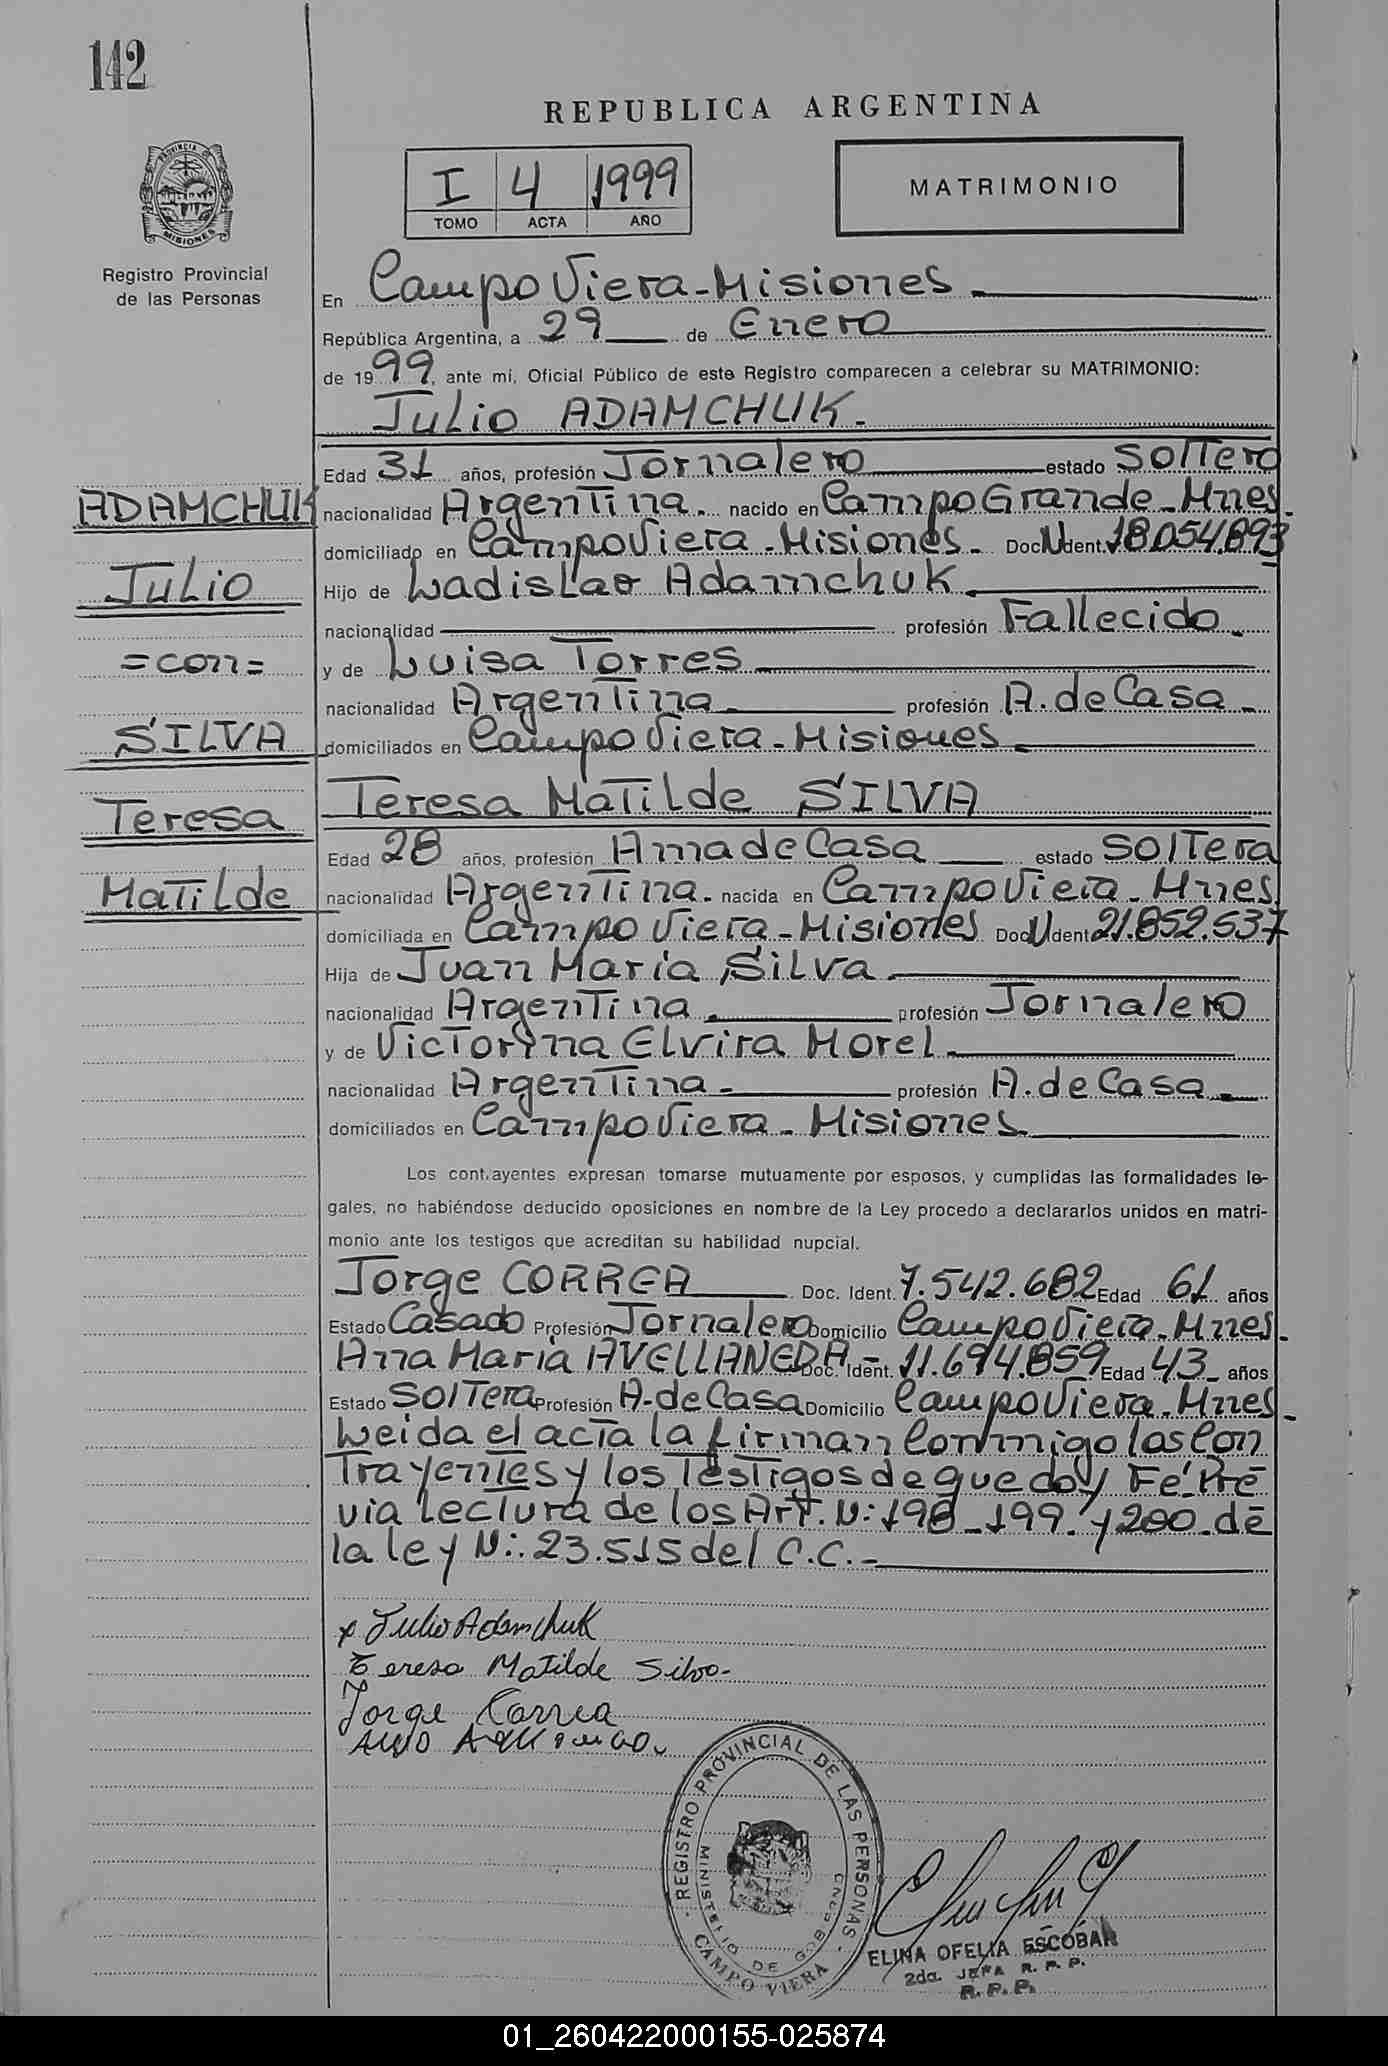 142
REPUBLICA ARGENTINA
I 4 1999
TOMO ACTA AÑO
MATRIMONIO
PROVINCIA DE
MISIONES
Registro Provincial
de las Personas
En Campo Viera - Misiones
República Argentina, a 29 de Enero
de 1999, ante mí, Oficial Público de este Registro comparecen a celebrar su MATRIMONIO:
Julio ADAMCHUK.
Edad 31 años, profesión Jornalero estado Soltero
ADAMCHUK
nacionalidad Argentina. nacido en Campo Grande - Mnes.
domiciliado en Campo Viera - Misiones. Doc N Ident. 18.054.893
Julio
Hijo de Ladislao Adamchuk
nacionalidad profesión Fallecido
=con=
y de Luisa Torres
nacionalidad Argentina profesión A. de Casa
SILVA
domiciliados en Campo Viera - Misiones
Teresa
Teresa Matilde SILVA
Edad 28 años, profesión Ama de Casa estado Soltera
Matilde
nacionalidad Argentina. nacida en Campo Viera - Mnes
domiciliada en Campo Viera - Misiones Doc N Ident 21.852.537
Hija de Juan Maria Silva
nacionalidad Argentina profesión Jornalero
y de Victorina Elvira Morel
nacionalidad Argentina profesión A. de Casa
domiciliados en Campo Viera - Misiones
Los contrayentes expresan tomarse mutuamente por esposos, y cumplidas las formalidades le-
gales, no habiéndose deducido oposiciones en nombre de la Ley procedo a declararlos unidos en matri-
monio ante los testigos que acreditan su habilidad nupcial.
Jorge CORREA Doc. Ident. 7.542.682 Edad 61 años
Estado Casado Profesión Jornalero Domicilio Campo Viera - Mnes.
Ana Maria AVELLANEDA - Doc. Ident. 11.694.859 Edad 43 años
Estado Soltera Profesión A. de Casa Domicilio Campo Viera - Mnes -
Leida el acta la firman Conmigo los Con
Trayentes y los Testigos de que doy Fé. Pre
via lectura de los Art. N: 198 - 199. y 200. de
la ley N: 23.515 del C.C. -
x Julio Adamchuk
Teresa Matilde Silva -
Jorge Correa
REGISTRO PROVINCIAL DE LAS PERSONAS
MINISTERIO DE GOBIERNO
CAMPO VIERA
ELINA OFELIA ESCOBAR
2da. JEFA R. P. P.
R. P. P.
01_260422000155-025874